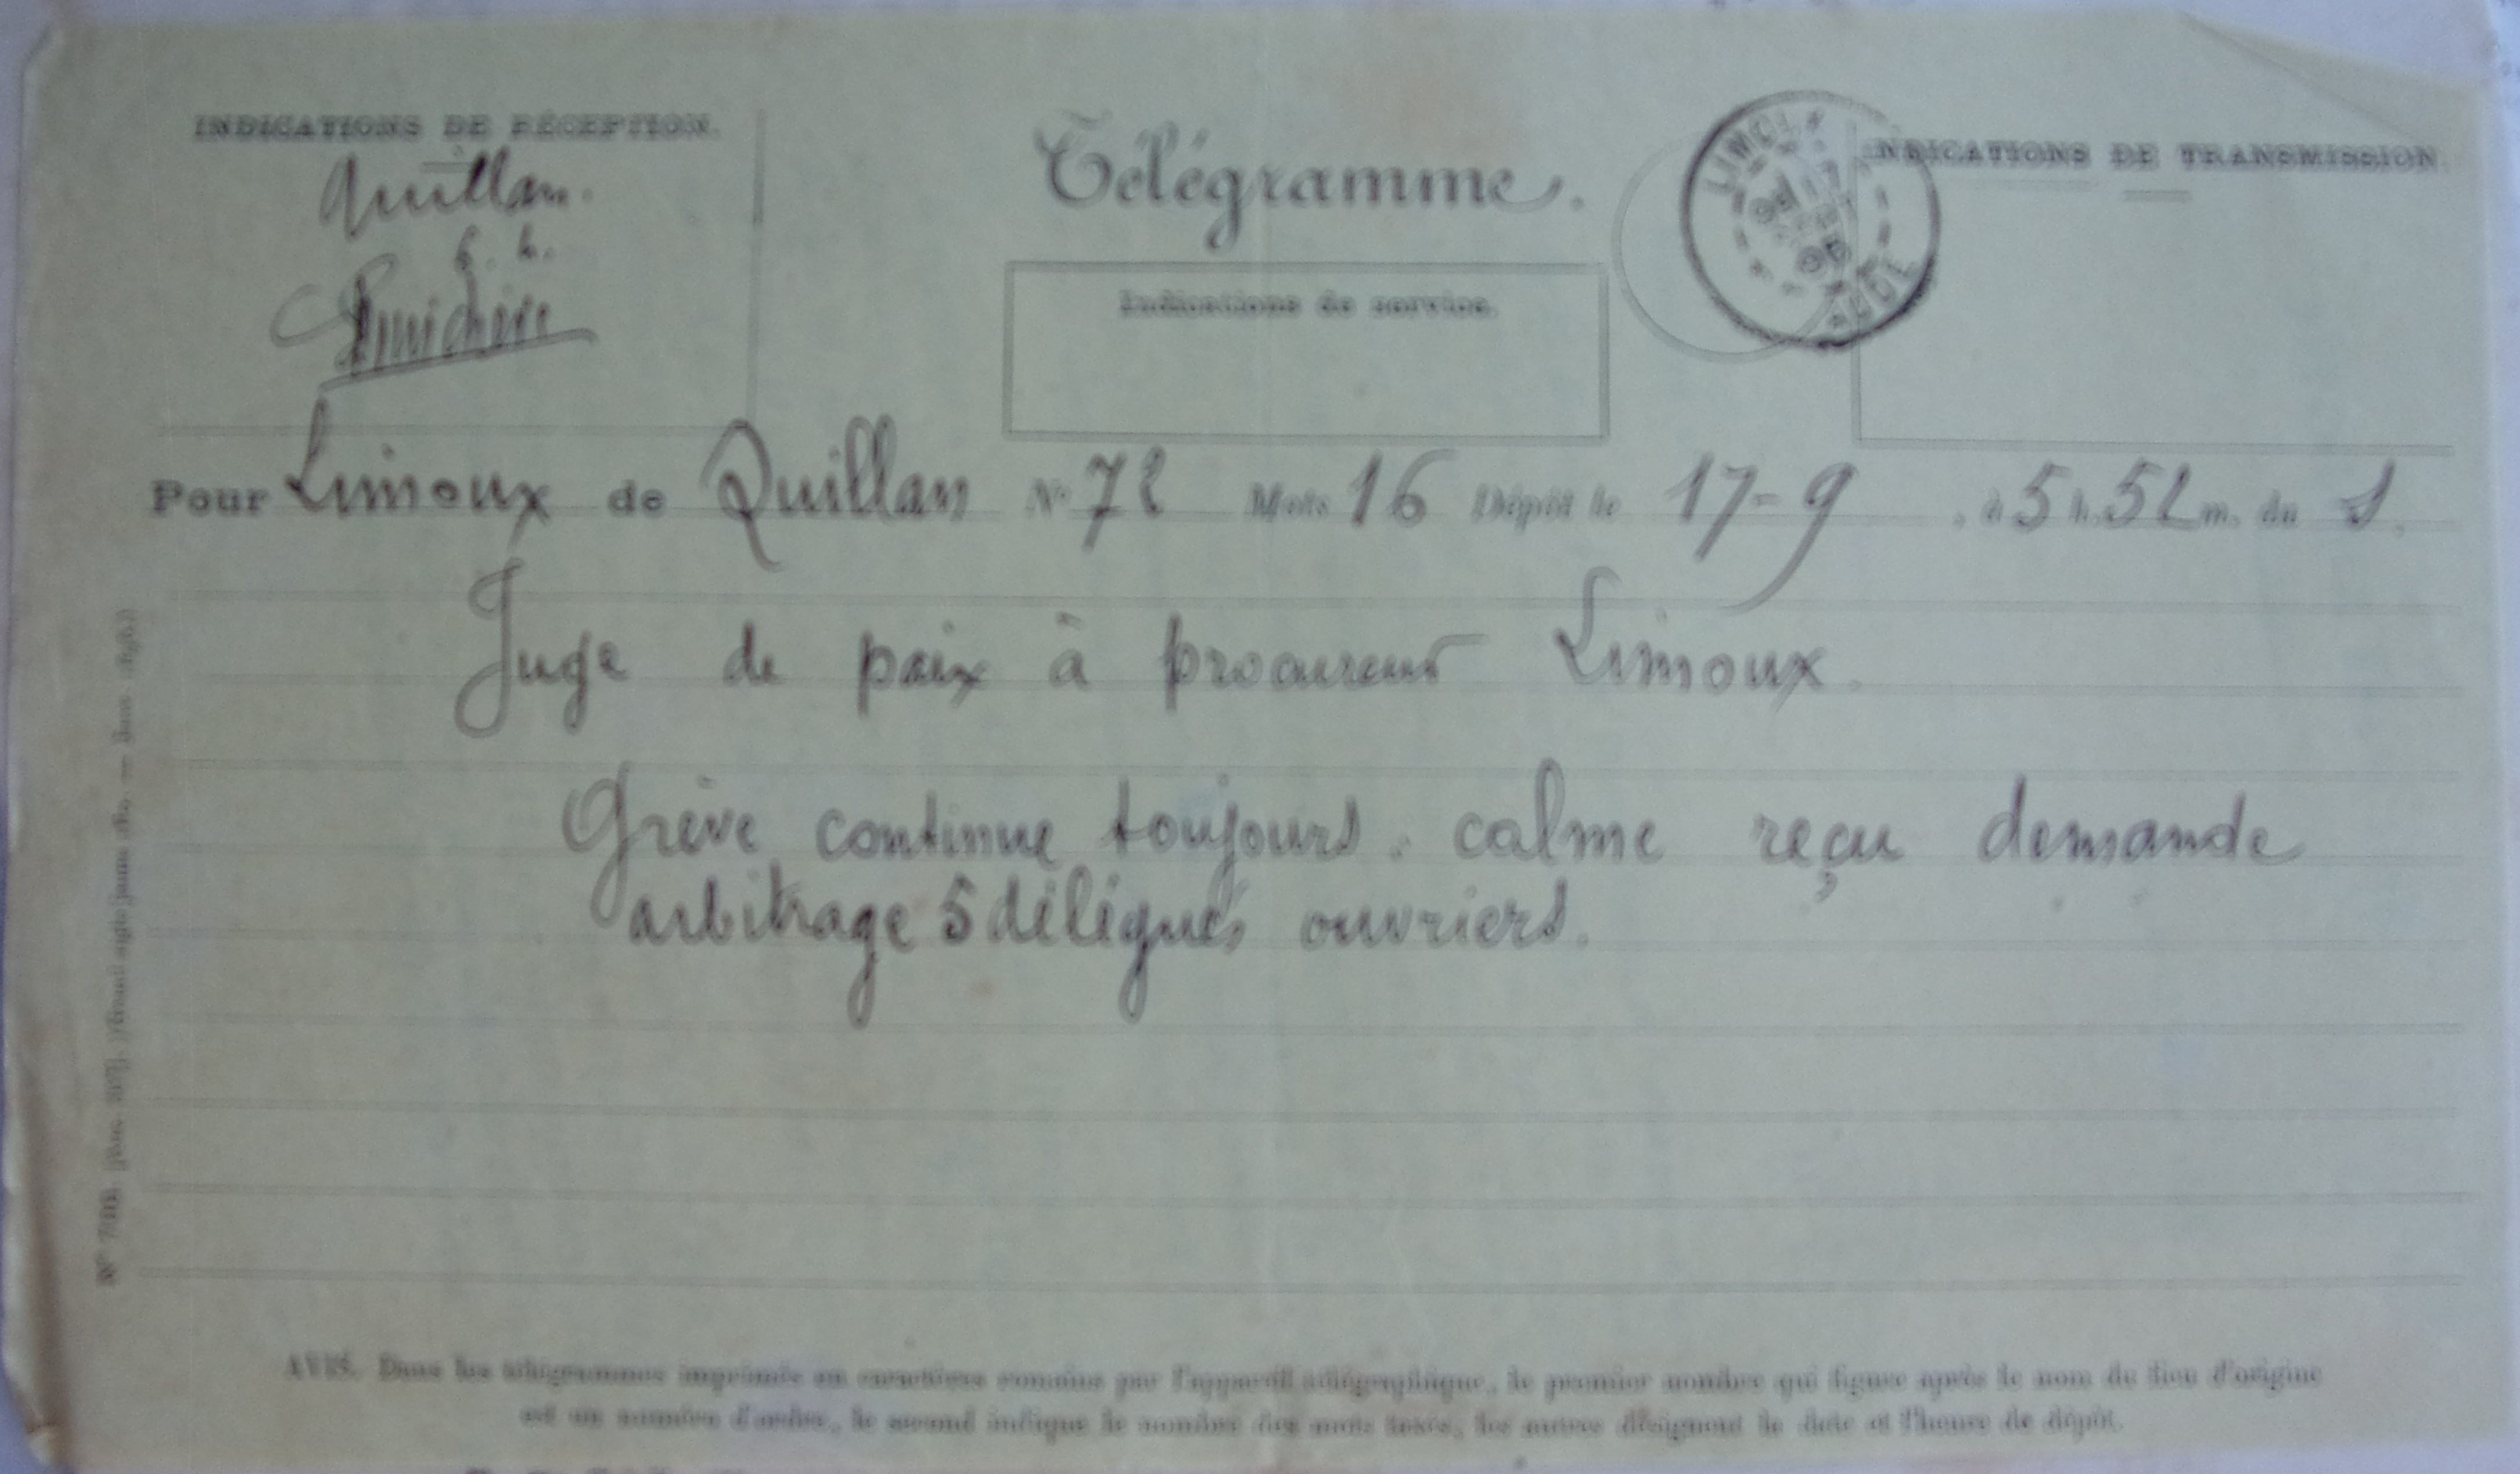 INDICATIONS DE RÉCEPTION.
Quillan.
Télégramme.
Indications de service.
LIMOUX
17
AUDE
INDICATIONS DE TRANSMISSION.
Pour Limoux de Quillan N° 72 Mots 16 Dépôt le 17-9, à 5 h. 52 m. du S.
Juge de paix à procureur Limoux.
Grève continue toujours. calme reçu demande
arbitrage 5 délégués ouvriers.
AVIS. Dans les télégrammes imprimés en caractères romains par l'appareil télégraphique, le premier nombre qui figure après le nom du lieu d'origine
est un numéro d'ordre, le second indique le nombre des mots taxés, les autres désignent la date et l'heure de dépôt.